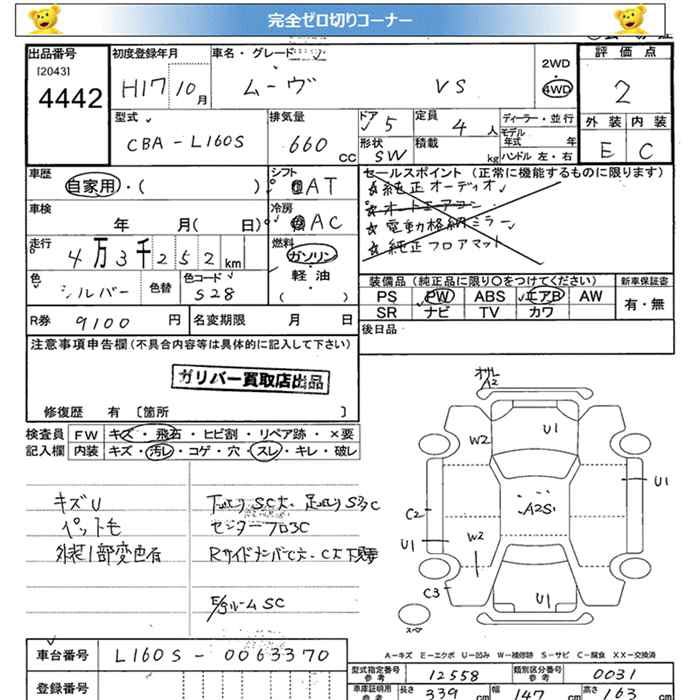 完全ゼロ切りコーナー
出品番号 初度登録年月 車名・グレード 2WD 評価点
[2043]
4442 H17 10月 ムーヴ VS 4WD 2
型式 排気量 ドア 5 定員 4人 ディーラー・並行 外装 内装
CBA-L160S 660cc 形状 SW 積載 kg モデル年式 年 E C
ハンドル 左・右
車歴 シフト セールスポイント (正常に機能するものに限ります)
自家用・( ) AT ☆純正オーディオ
車検 冷房 ☆オートエアコン
年 月( 日) AC ☆電動格納ミラー
走行 燃料 ☆純正フロアマット
4万3千252km ガソリン
色 シルバー 色替 色コード S28 軽・油 ( )
装備品 (純正品に限り○をつけてください) 新車保証書
PS PW ABS エアB AW 有・無
SR ナビ TV カワ
R券 9100円 名変期限 月 日 後日品
注意事項申告欄 (不具合内容等は具体的に記入して下さい)
ガリバー買取店出品
修復歴 有 [箇所 ]
検査員 FW キズ・飛石・ヒビ割・リペア跡・×要
記入欄 内装 キズ・汚レ・コゲ・穴・スレ・キレ・破レ
キズU
ペット毛
外装1部変色有
SC大
C
SC
A2
U1
W2
A2S
U1
C2
U1
W2
C3
U1
スペア
A-キズ E-エクボ U-凹み W-補修跡 S-サビ C-腐食 XX-交換済
車台番号 L160S-0063370
登録番号
型式指定番号 参考 12558 類別区分番号 参考 0031
車庫証明用 参考 長さ 339cm 幅 147cm 高さ 163cm